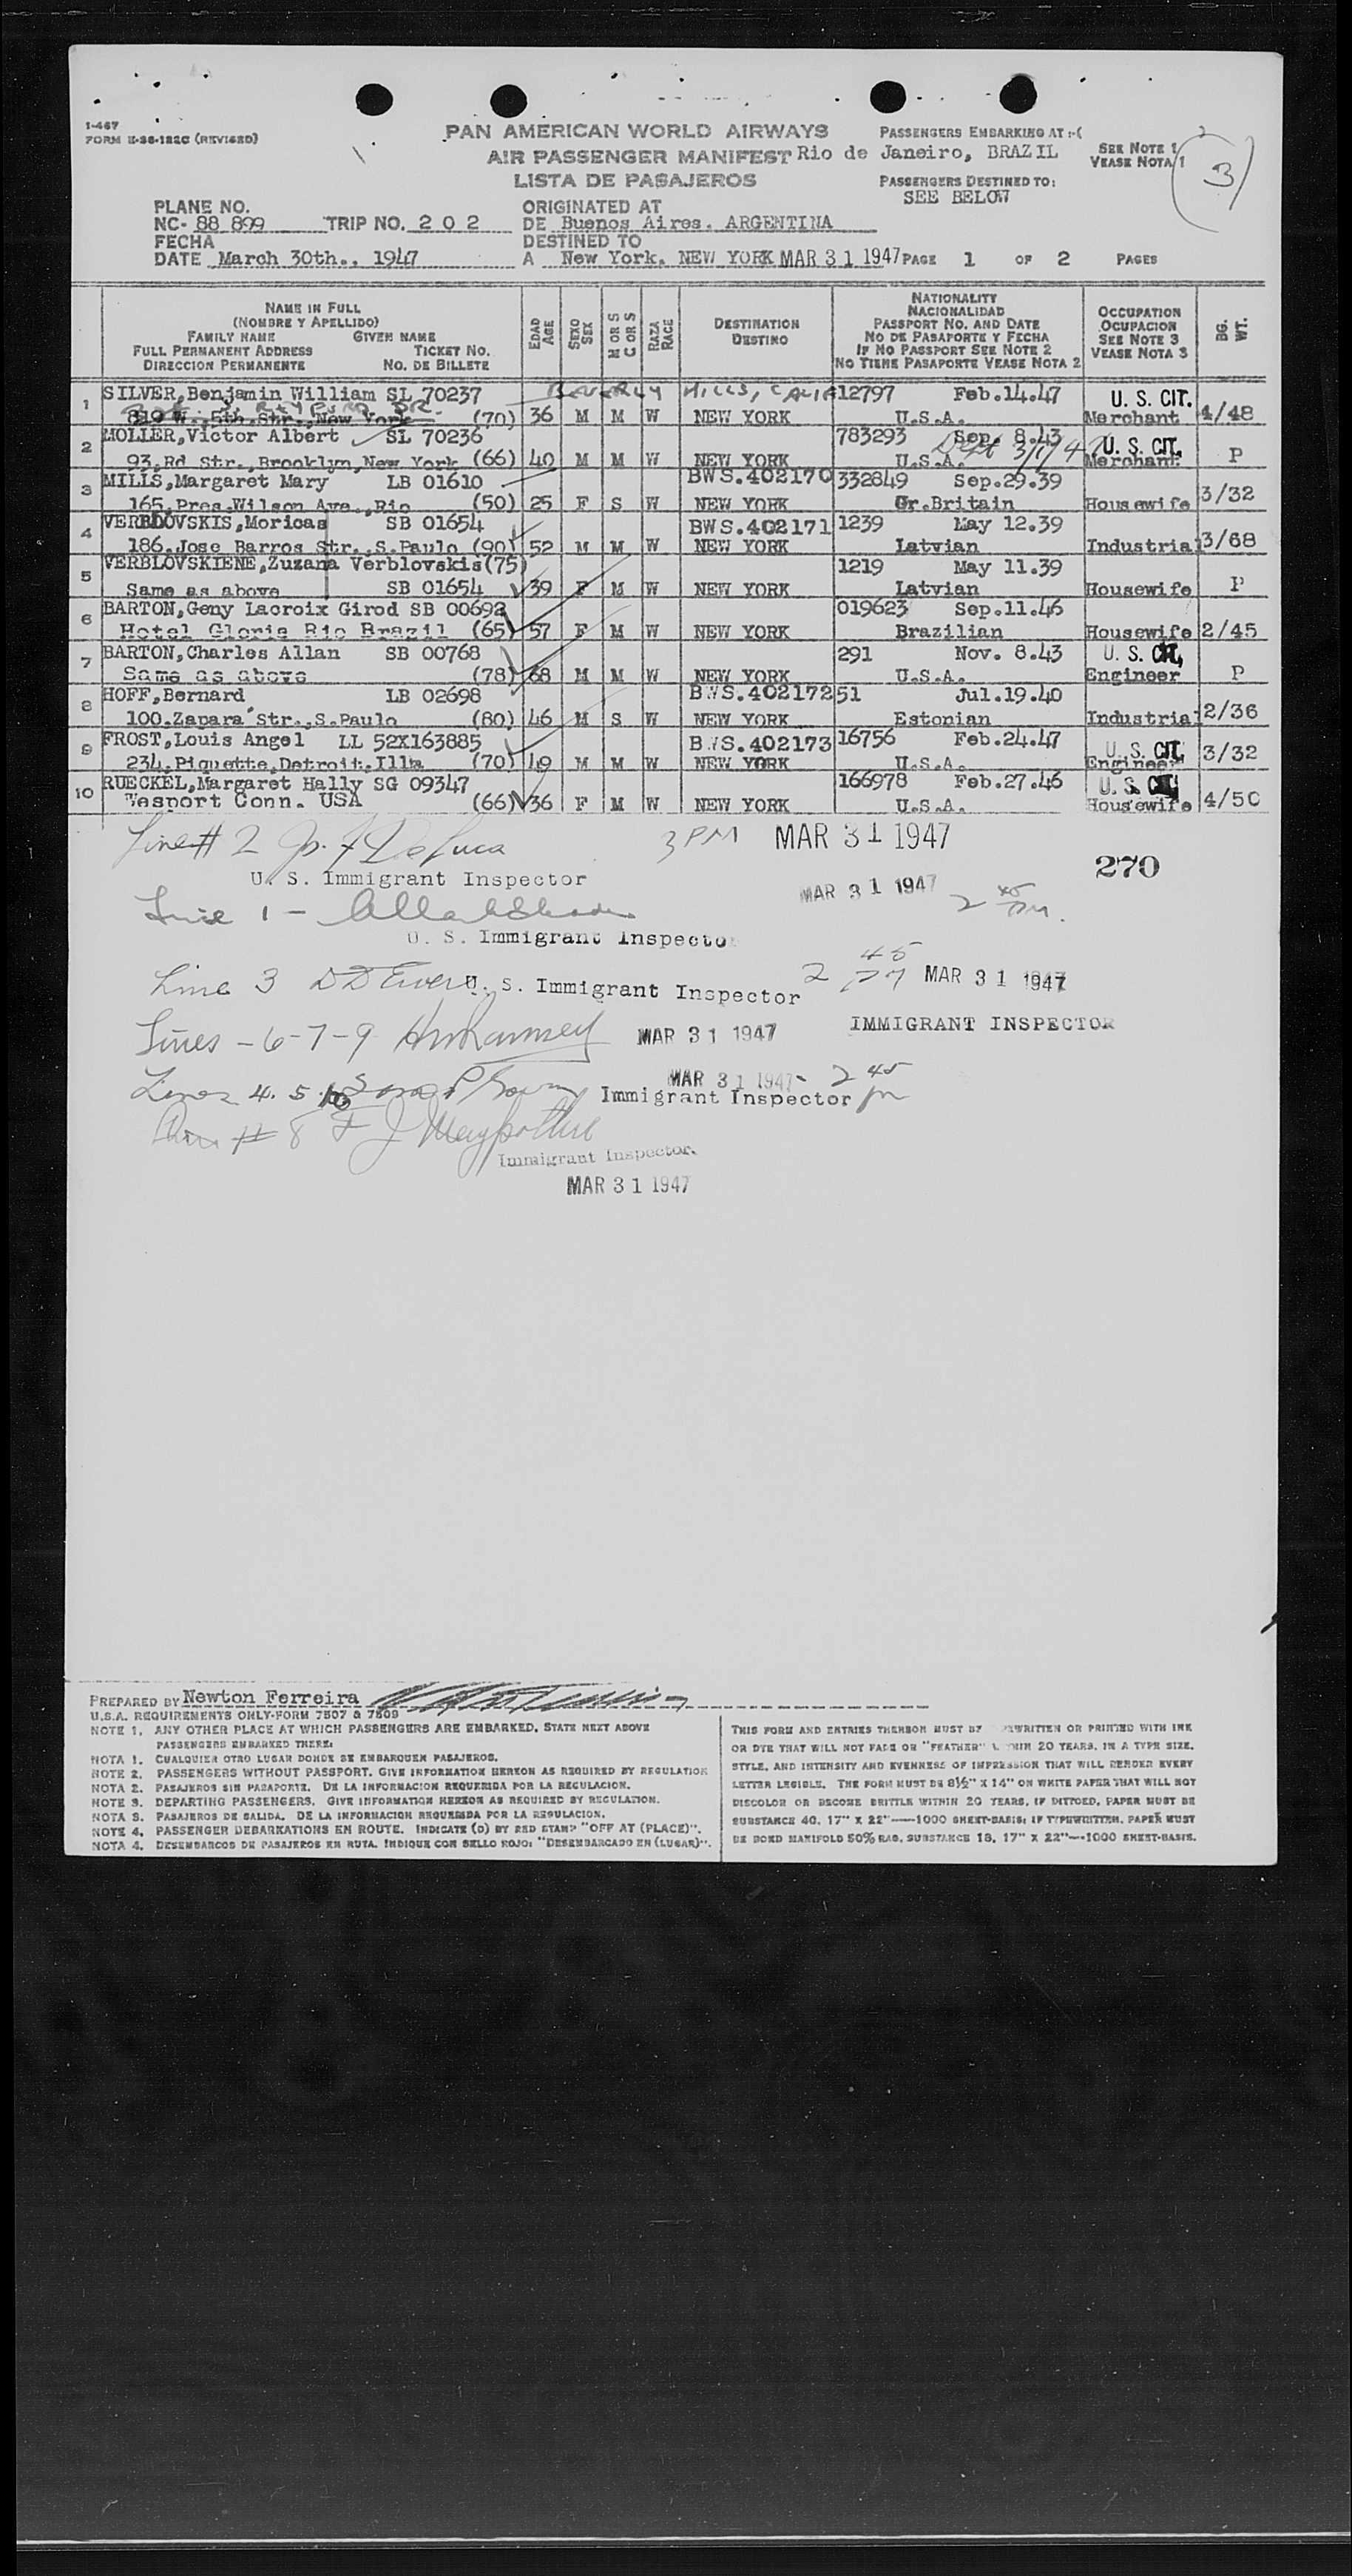 I-467
FORM E-36-122C (REVISED)
PAN AMERICAN WORLD AIRWAYS
AIR PASSENGER MANIFEST
LISTA DE PASAJEROS
PASSENGERS EMBARKING AT :-(
Rio de Janeiro, BRAZIL
SEE NOTE 1
VEASE NOTA 1
3
PASSENGERS DESTINED TO:
SEE BELOW
PLANE NO.
NC- 88 899 TRIP NO. 2 0 2
ORIGINATED AT
DE Buenos Aires. ARGENTINA
FECHA
DATE March 30th., 1947
DESTINED TO
A New York. NEW YORK MAR 31 1947 PAGE 1 OF 2 PAGES
NAME IN FULL
(NOMBRE Y APELLIDO)
FAMILY NAME GIVEN NAME
FULL PERMANENT ADDRESS TICKET NO.
DIRECCION PERMANENTE NO. DE BILLETE
EDAD AGE
SEXO SEX
M OR S
C OR S
RAZA RACE
DESTINATION
DESTINO
NATIONALITY
NACIONALIDAD
PASSPORT NO. AND DATE
NO DE PASAPORTE Y FECHA
IF NO PASSPORT SEE NOTE 2
NO TIENE PASAPORTE VEASE NOTA 2
OCCUPATION
OCUPACION
SEE NOTE 3
VEASE NOTA 3
BG. WT.
1 SILVER,Benjamin William SL 70237 BEVERLY HILLS, CALIF 12797 Feb.14.47 U. S. CIT.
810 W. 5th Str.,New York (70) 36 M M W NEW YORK U.S.A. Merchant 4/48
2 MOLLER,Victor Albert SL 70236 783293 Sep. 8.43 U. S. CIT.
93,Rd Str.,Brooklyn,New York (66) 40 M M W NEW YORK U.S.A. Merchant P
3 MILLS,Margaret Mary LB 01610 BWS.402170 332849 Sep.29.39
165,Pres.Wilson Ave.,Rio (50) 25 F S W NEW YORK Gr.Britain Housewife 3/32
4 VERBLOVSKIS,Moricas SB 01654 BWS.402171 1239 May 12.39
186.Jose Barros Str.,S.Paulo (90) 52 M M W NEW YORK Latvian Industrial 3/68
5 VERBLOVSKIENE,Zuzana Verblovskis(75) 1219 May 11.39
Same as above SB 01654 39 F M W NEW YORK Latvian Housewife P
6 BARTON,Geny Lacroix Girod SB 00692 019623 Sep.11.46
Hotel Gloria Rio Brazil (65) 57 F M W NEW YORK Brazilian Housewife 2/45
7 BARTON,Charles Allan SB 00768 291 Nov. 8.43 U. S. CIT.
Same as above (78) 68 M M W NEW YORK U.S.A. Engineer P
8 HOFF,Bernard LB 02698 BWS.402172 51 Jul.19.40
100.Zapara Str.,S.Paulo (80) 46 M S W NEW YORK Estonian Industrial 2/36
9 FROST,Louis Angel LL 52X163885 BWS.402173 16756 Feb.24.47 U. S. CIT.
234.Piquette,Detroit,Illm (70) 49 M M W NEW YORK U.S.A. Engineer 3/32
10 RUECKEL,Margaret Hally SG 09347 166978 Feb.27.46 U. S. CIT.
Wesport Conn. USA (66) 36 F M W NEW YORK U.S.A. Housewife 4/50
Line # 2 Jos. F DeLuca 3 PM MAR 31 1947
270
U. S. Immigrant Inspector
Line 1 - MAR 31 1947 2 45 PM.
U. S. Immigrant Inspector
Line 3 U. S. Immigrant Inspector 2 45 MAR 31 1947
IMMIGRANT INSPECTOR
Lines - 6-7-9 MAR 31 1947
Lines 4. 5. 10 MAR 31 1947 - 2 45
Immigrant Inspector pm
Line # 8
Immigrant Inspector.
MAR 31 1947
PREPARED BY Newton Ferreira
U.S.A. REQUIREMENTS ONLY-FORM 7507 & 7509
NOTE 1. ANY OTHER PLACE AT WHICH PASSENGERS ARE EMBARKED, STATE NEXT ABOVE
PASSENGERS EMBARKED THERE:
NOTA 1. CUALQUIER OTRO LUGAR DONDE SE EMBARQUEN PASAJEROS.
NOTE 2. PASSENGERS WITHOUT PASSPORT. GIVE INFORMATION HEREON AS REQUIRED BY REGULATION
NOTA 2. PASAJEROS SIN PASAPORTE. DE LA INFORMACION REQUERIDA POR LA REGULACION.
NOTE 3. DEPARTING PASSENGERS. GIVE INFORMATION HEREON AS REQUIRED BY REGULATION.
NOTA 3. PASAJEROS DE SALIDA. DE LA INFORMACION REQUERIDA POR LA REGULACION.
NOTE 4. PASSENGER DEBARKATIONS EN ROUTE. INDICATE (D) BY RED STAMP "OFF AT (PLACE)".
NOTA 4. DESEMBARCOS DE PASAJEROS EN RUTA. INDIQUE CON SELLO ROJO: "DESEMBARCADO EN (LUGAR)".
THIS FORM AND ENTRIES THEREON MUST BE TYPEWRITTEN OR PRINTED WITH INK
OR DYE THAT WILL NOT FADE OR "FEATHER" WITHIN 20 YEARS, IN A TYPE SIZE,
STYLE, AND INTENSITY AND EVENNESS OF IMPRESSION THAT WILL RENDER EVERY
LETTER LEGIBLE. THE FORM MUST BE 8½" X 14" ON WHITE PAPER THAT WILL NOT
DISCOLOR OR BECOME BRITTLE WITHIN 20 YEARS, IF DITTOED, PAPER MUST BE
SUBSTANCE 40, 17" X 22"—1000 SHEET-BASIS; IF TYPEWRITTEN, PAPER MUST
BE BOND MANIFOLD 50% RAG, SUBSTANCE 18, 17" X 22"—1000 SHEET-BASIS.